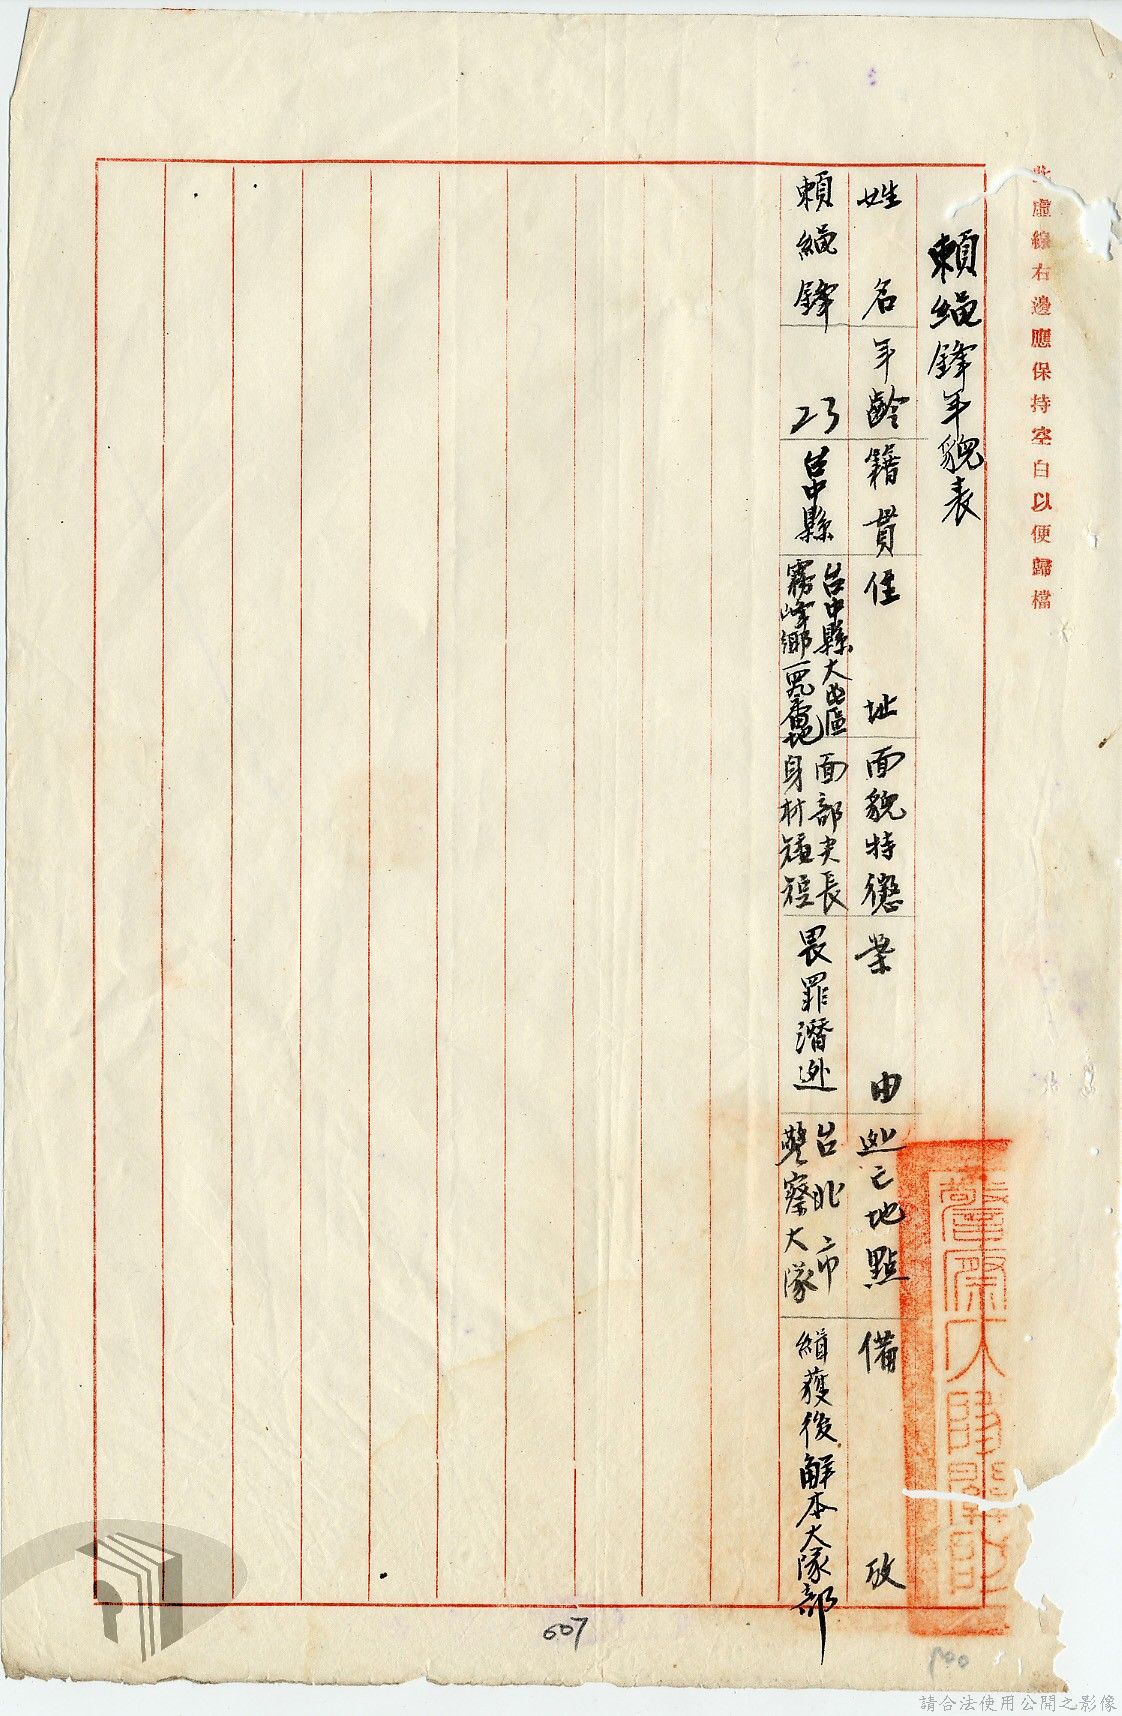 虛線右邊應保持空白以便歸檔
賴繩鋒年貌表
姓名
年齡
籍貫
住址
面貌特徵
案由
逃亡地點
備攷
賴繩鋒
23
台中縣
台中縣大屯區
霧峰鄉
面部尖長
身材矮短
畏罪潛逃
台北市
警察大隊
緝獲後解本大隊部
607
請合法使用公開之影像